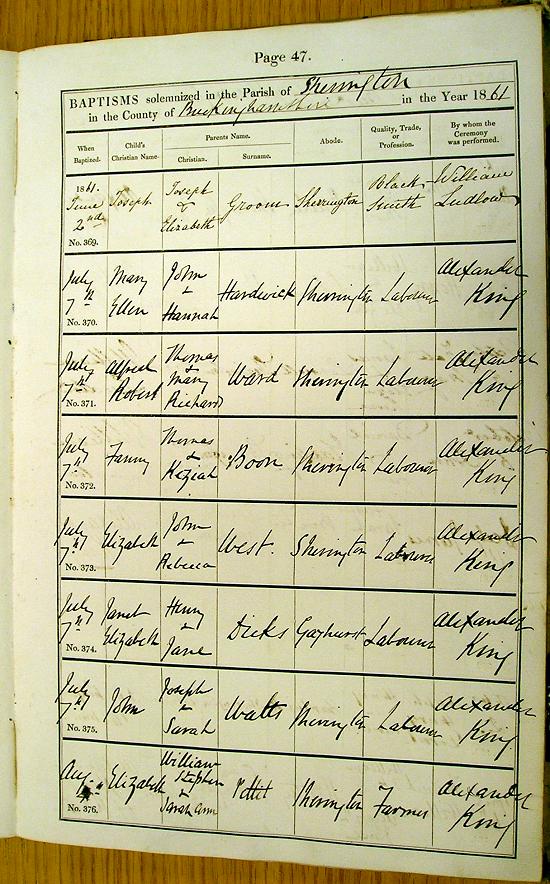 Page 47.
BAPTISMS solemnized in the Parish of Sherington
in the County of Buckinghamshire in the Year 1861
When Baptized. Child's Christian Name. Parents Name. Christian. Surname. Abode. Quality, Trade, or Profession. By whom the Ceremony was performed.
1861. June 2nd No. 369. Joseph Joseph & Elizabeth Groom Sherrington Black Smith William Ludlow
July 7th No. 370. Mary Ellen John & Hannah Hardwick Sherrington Labourer Alexander King
July 7th No. 371. Alfred Robert Thomas & Mary Richard Ward Sherrington Labourer Alexander King
July 7th No. 372. Fanny Thomas & Keziah Boon Sherington Labourer Alexander King
July 7th No. 373. Elizabeth John & Rebecca West. Sherington Labourer Alexander King
July 7th No. 374. Janet Elizabeth Henry & Jane Dicks Gayhurst Labourer Alexander King
July 7th No. 375. John Joseph & Sarah Watts Sherington Labourer Alexander King
Aug. No. 376. Elizabeth William Stephen & Sarah Ann Pettit Sherington Farmer Alexander King